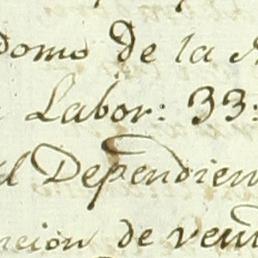 domo de la
Labor: 33:
el Dependien
ncion de ven